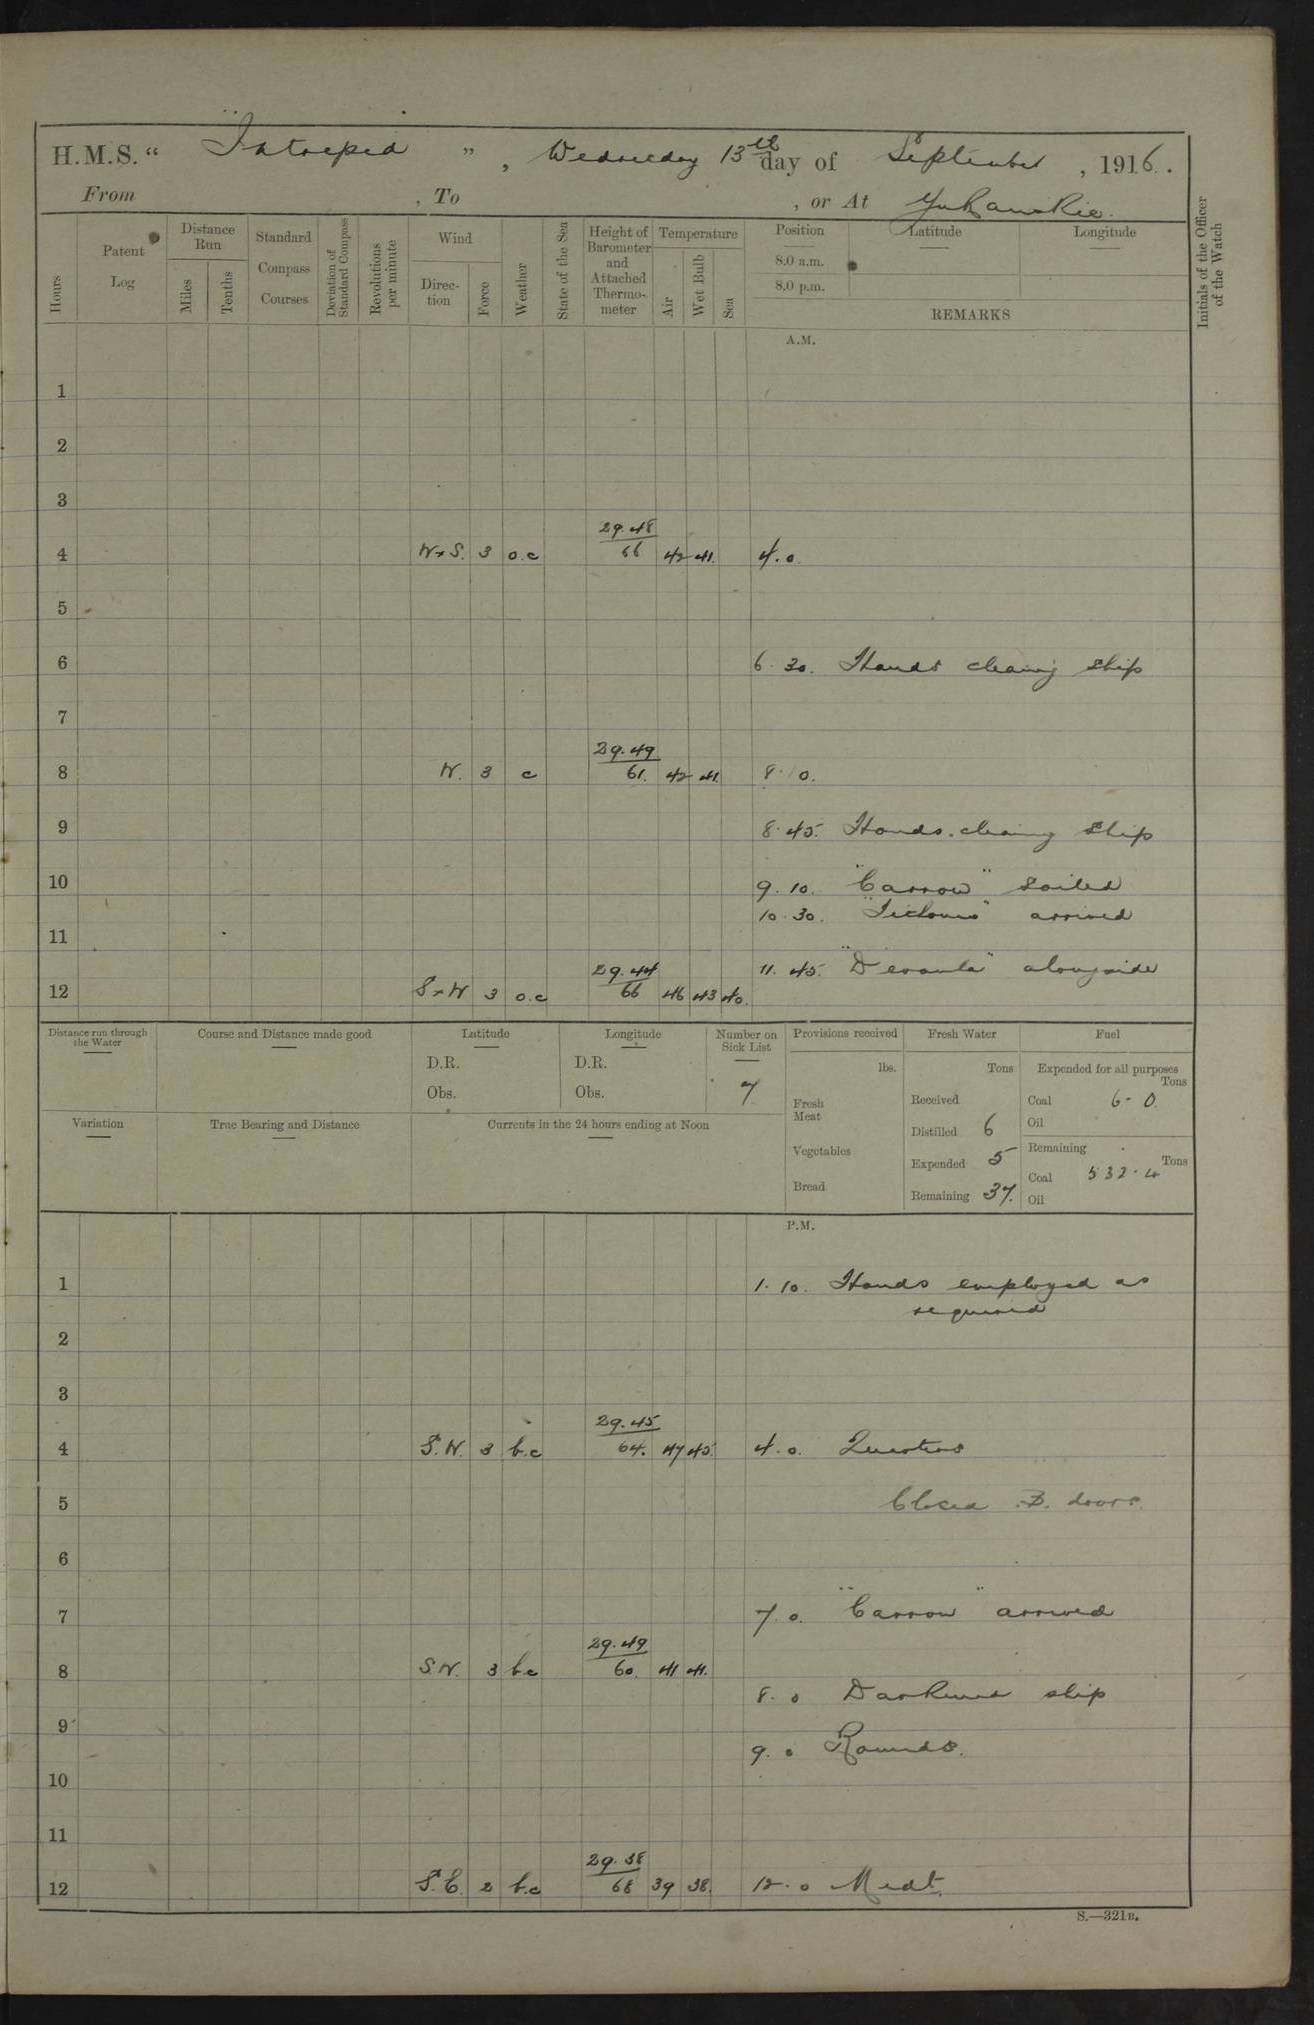 H.M.S. " Intrepid ", Wednesday 13th day of September, 1916.
From , To , or At Yukanskie.
Hours
Patent Log
Distance Run
Miles
Tenths
Standard Compass Courses
Deviation of Standard Compass
Revolutions per minute
Wind
Direction
Force
Weather
State of the Sea
Height of Barometer and Attached Thermometer
Temperature
Air
Wet Bulb
Sea
Position
8.0 a.m.
8.0 p.m.
Latitude
Longitude
REMARKS
Initials of the Officer of the Watch
A.M.
1
2
3
29.48
4 W x S. 3 o.c 66 42 41. 4.0
5
6 6.30. Hands cleaning ship
7
29.49
8 W. 3 c 61. 42 41. 8.0.
9 8.45. Hands cleaning ship
10 9.10. "Carrow" sailed
10.30. arrived
11
29.44 11.45. alongside
12 S x W 3 o.c 66 46 43 40.
Distance run through the Water
Course and Distance made good
Latitude
D.R.
Obs.
Longitude
D.R.
Obs.
Number on Sick List
7
Variation
True Bearing and Distance
Currents in the 24 hours ending at Noon
Provisions received
lbs.
Fresh Meat
Vegetables
Bread
Fresh Water
Tons
Received
Distilled 6
Expended 5
Remaining 37.
Fuel
Expended for all purposes
Tons
Coal 6-0.
Oil
Remaining
Tons
Coal 532.4
Oil
P.M.
1 1.10. Hands employed as
required
2
3
29.45
4 S.W. 3 b.c 64. 47 45. 4.0. Quarters
5 Closed B. doors.
6
7 7.0. "Carrow" arrived
29.49
8 S.W. 3 b.c 60. 41 41.
8.0 Darkened ship
9 9.0 Rounds.
10
11
29.38
12 S.E. 2 b.c 68 39 38. 12.0 Midt.
S.—321B.